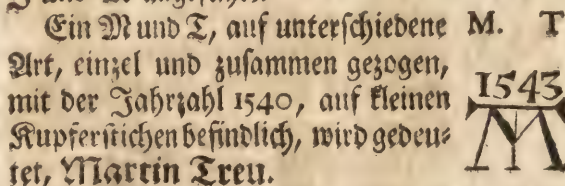 Ein M und T, auf unterſchiedene
Art, einzel und zuſammen gezogen,
mit der Jahrzahl 1540, auf kleinen
Kupferſtichen befindlich, wird gedeu⸗
tet, Martin Treu.
M. T
1543